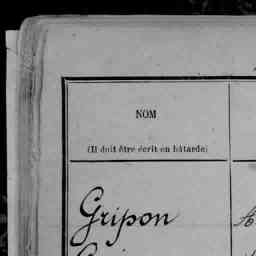 NOM
(Il doit être écrit en bâtarde)
Gripon